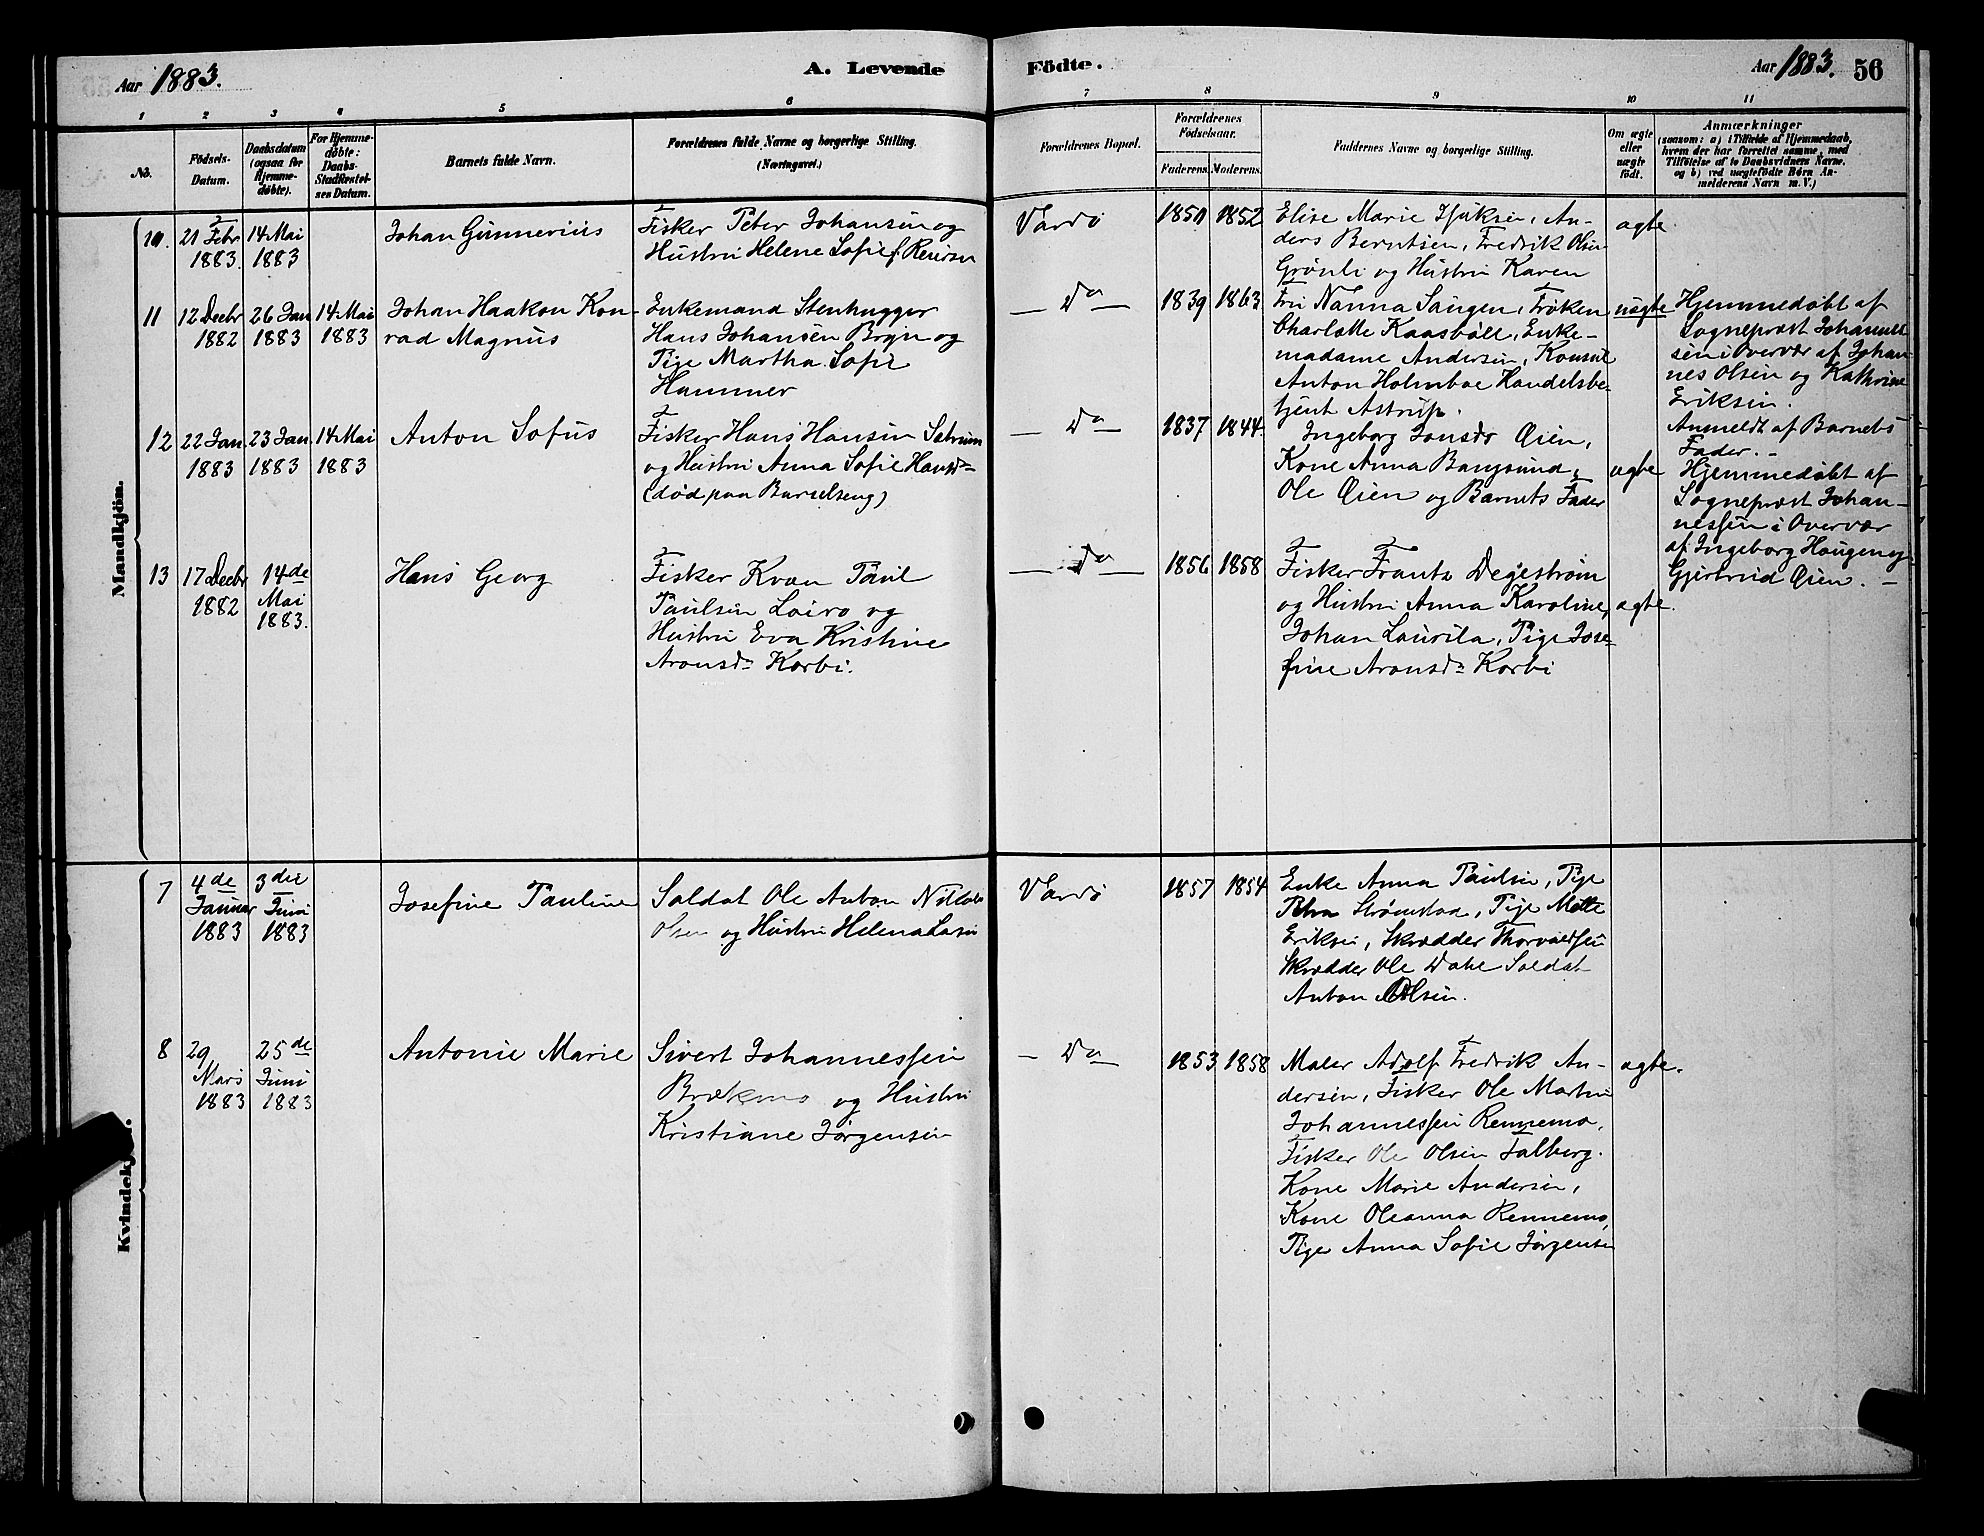 Aar 1883.
A. Levende Födte.
Aar 1883. 56
1 2 3 4 5 6 7 8 9 10 11
No.
Födsels-
Datum.
Daabsdatum
(ogsaa for
Hjemme-
døbte).
For Hjemme-
døbte:
Daabs-
Stadfæstel-
ses Datum.
Barnets fulde Navn.
Forældrenes fulde Navne og borgerlige Stilling.
(Næringsvei.)
Forældrenes Bopæl.
Forældrenes
Födselsaar.
Faderens. Moderens.
Faddernes Navne og borgerlige Stilling.
Om ægte
eller
uægte
født.
Anmærkninger
(saasom: a) i Tilfælde af Hjemmedaab,
hvem der har forrettet samme, med
Tilføielse af to Daabsvidners Navne,
og b) ved uægtefödte Børn An-
melderens Navn m. V.)
Mandkjön.
10. 21 Febr
1883.
14 Mai
1883
Johan Gunnerius
Fisker Peter Johansen og
Hustru Helene Sofie f.
Vardö
1850 1852
Elise Marie An-
ders Berntsen, Fredrik Olsen
Grönli og Hustru Karen
ægte
11 12 Decbr
1882
26 Jan
1883
14 Mai
1883
Johan Haakon Kon-
rad Magnus
Enkemand Stenhugger
Hans Johansen Bryn og
Pige Martha Sofie
Hammer
— Do —
1839 1863
Fru Nanna Saugen, Frøken
Charlotte Kaasböll, Enke-
madame Andersen, Konsul
Anton Holmboe Handelsbe-
tjent Astrup.
uægte
Hjemmedøbt af
Sognepræst Johannes
sen i Overvær af Johan-
nes Olsen og Kathrine
Eriksen.
Anmeldt af Barnets
Fader. –
12 22 Jan.
1883
23 Jan
1883
14 Mai
1883
Anton Sofus
Fisker Hans Hansen
og Hustru Anna Sofie Hansd.
(død paa Barselseng)
— Do —
1837 1844.
Ingeborg Jonsdr Öien,
Kone Anna Bangsund,
Ole Öien og Barnets Fader
ægte
Hjemmedøbt af
Sognepræst Johan-
nessen i Overvær
af Ingeborg Haugen og
Gjertrud Öien. –
13 17 Decbr
1882
14de
Mai
1883.
Hans Georg
Fisker Kvæn Paul
Paulsen Lairo og
Hustru Eva Kristine
Aronsdr Korbi.
— Do —
1856 1858
Fisker Frants Degeström
og Hustru Anna Karoline,
Johan Laurila, Pige Jose-
fine Aronsdr Korbi
ægte.
Kvindekjön.
7 4de
Januar
1883
3die
Juni
1883
Josefine Pauline
Soldat Ole Anton
Olsen og Hustru Helena
Vardö
1857 1854
Enke Anna Paulsen, Pige
Petra Strömstad, Pige Mette
Eriksen, Skrædder Thorvaldsen
Skrædder Ole Dahl Soldat
Anton Olsen.
8 29
Mars
1883
25de
Juni
1883
Antonie Marie
Sivert Johannessen
Brækmo og Hustru
Kristiane Jörgensen
– Do –
1853 1858
Maler Adolf Fredrik An-
dersen, Fisker Ole Martin
Johannessen Rennemo,
Fisker Ole Olsen Falberg.
Kone Marie Andersen,
Kone Oleanna Rennemo,
Pige Anna Sofie Jörgensen
ægte.